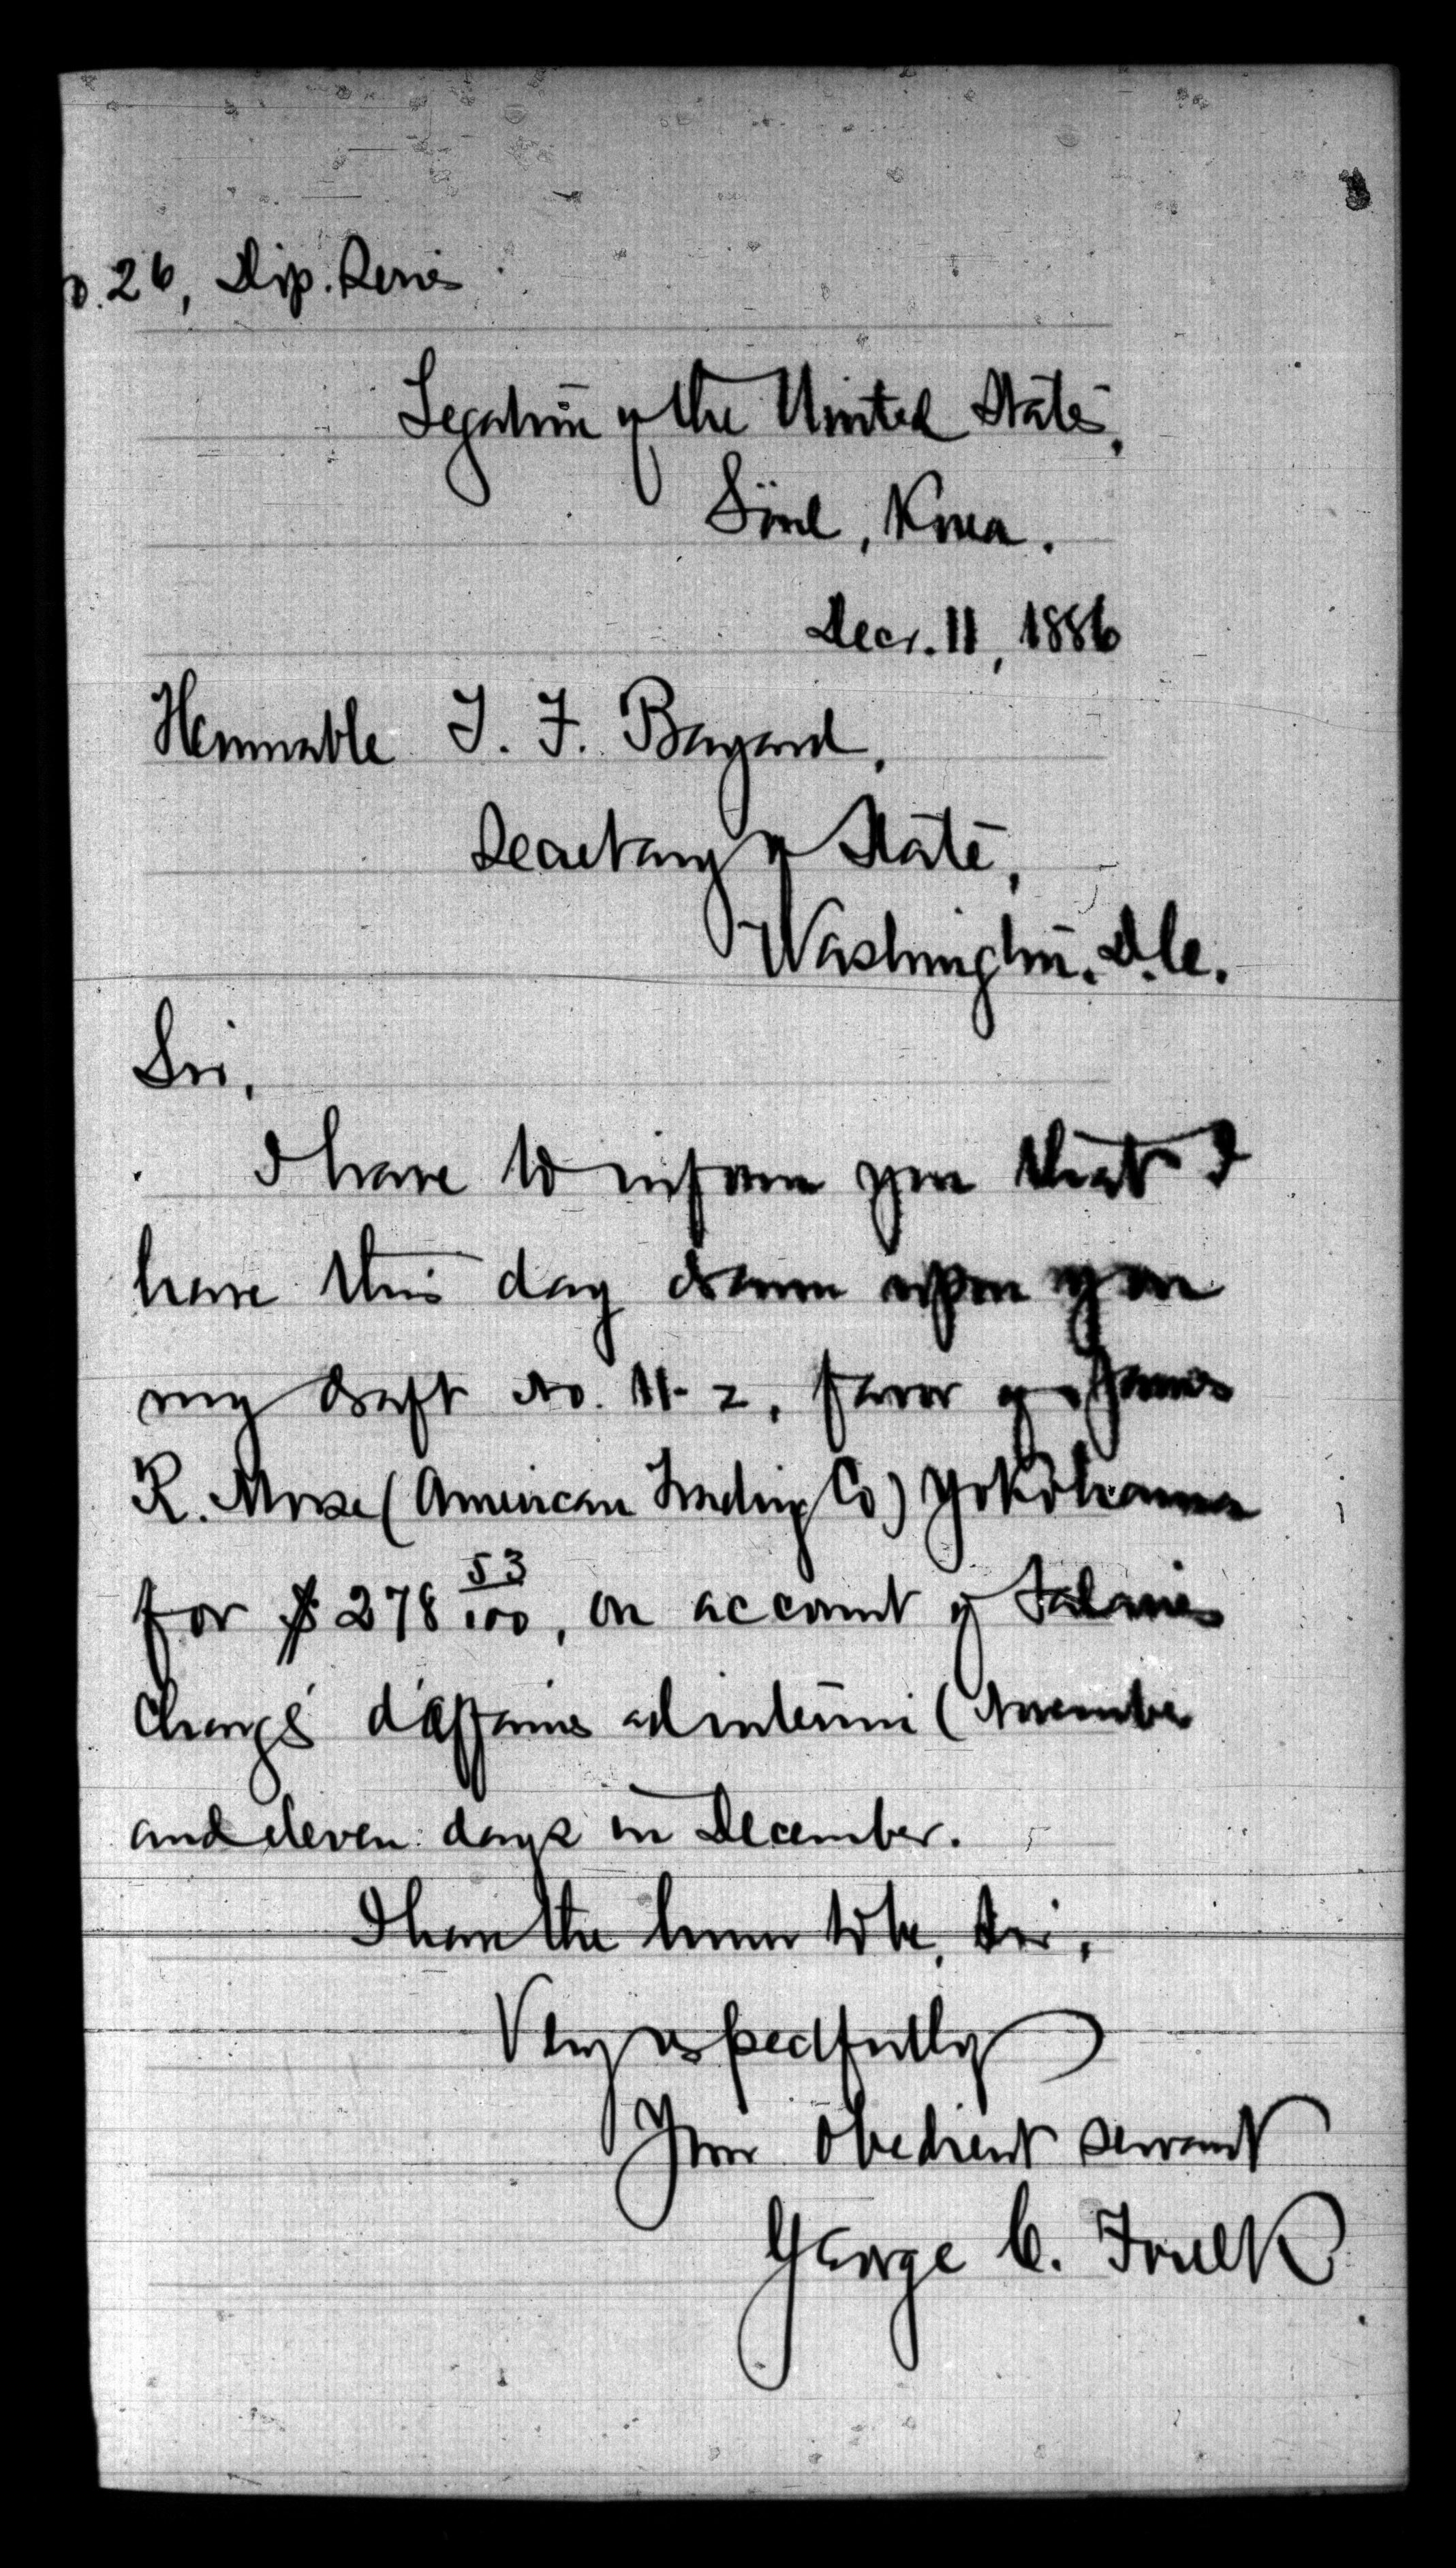 o. 26, Dip. Series
Legation of the United States,
Söul, Korea.
Decr. 11, 1886
Honorable T. F. Bayard,
Secretary of State,
Washington. D.C.
Sir,
I have to inform you that I
have this day drawn upon you
my draft No. 11-2, favor of James
R. Morse (American Trading Co) Yokohama
for $278 53/100, on account of Salaries
Chargé d'affaires ad interim (November
and eleven days in December.
I have the honor to be, Sir,
Very respectfully
Your obedient servant
George C. Foulk